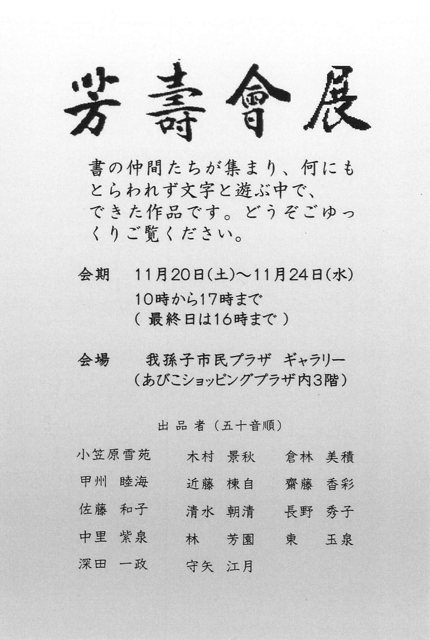 芳壽會展
書の仲間たちが集まり、何にも
とらわれず文字と遊ぶ中で、
できた作品です。どうぞごゆっ
くりご覧ください。
会期 11月20日(土)〜11月24日(水)
10時から17時まで
( 最終日は16時まで )
会場 我孫子市民プラザ ギャラリー
(あびこショッピングプラザ内3階)
出品者(五十音順)
小笠原雪苑 木村 景秋 倉林 美積
甲州 睦海 近藤 棟自 齋藤 香彩
佐藤 和子 清水 朝清 長野 秀子
中里 紫泉 林 芳園 東 玉泉
深田 一政 守矢 江月